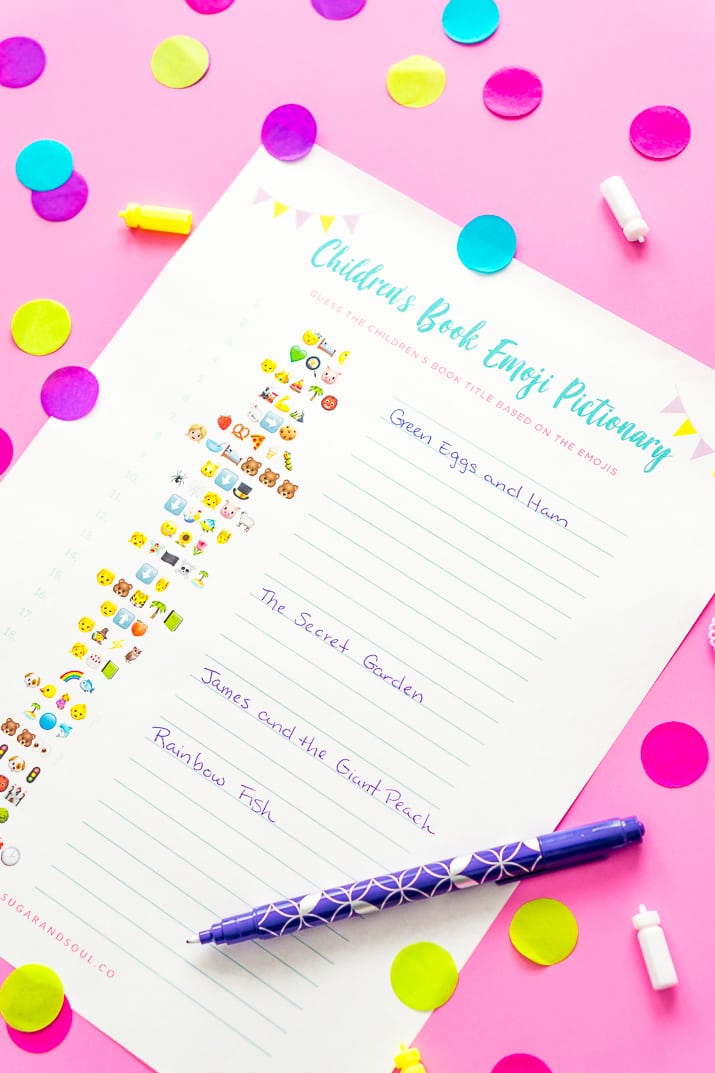 Children's Book Emoji Pictionary
GUESS THE CHILDREN'S BOOK TITLE BASED ON THE EMOJIS
Green Eggs and Ham
The Secret Garden
James and the Giant Peach
Rainbow Fish
9.
10.
11.
12.
13.
14.
15.
16.
17.
18.
SUGARANDSOUL.CO